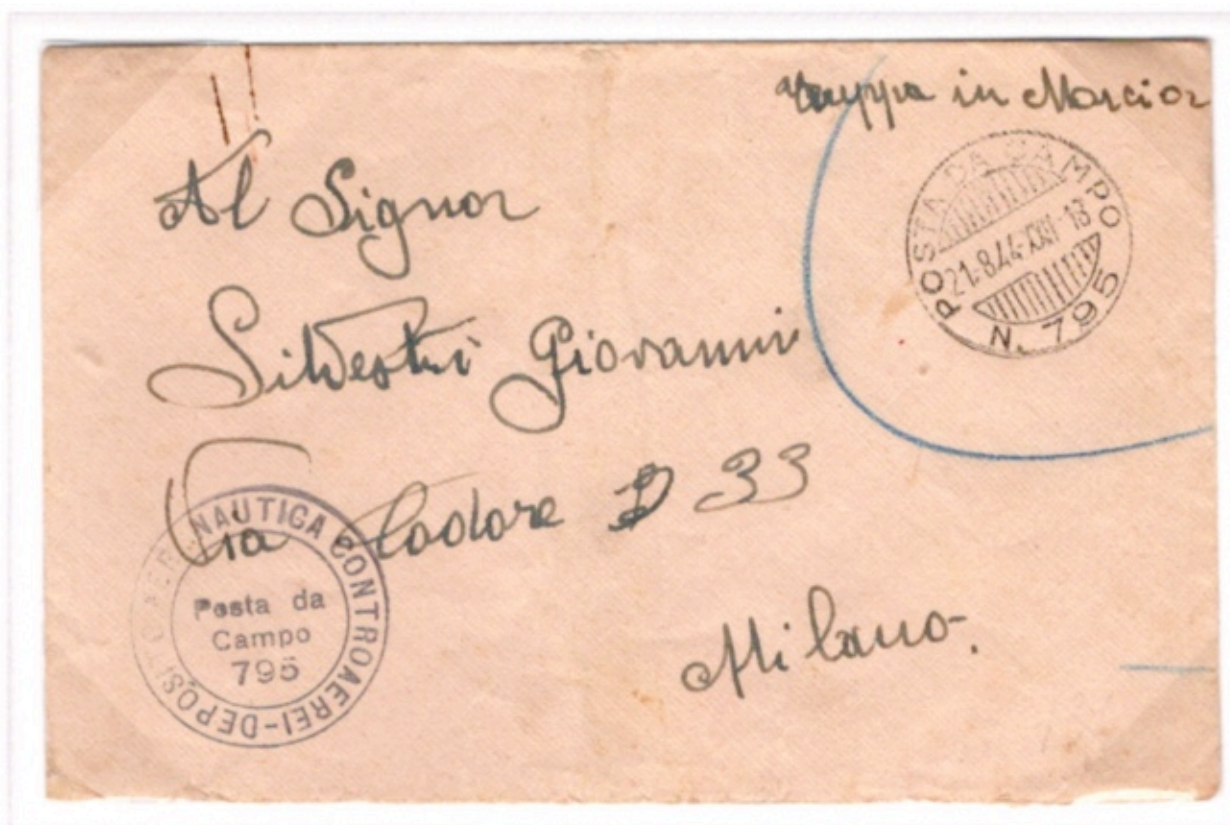 Truppa in Marcia
POSTA DA CAMPO
21-8.44-XXII-18
N. 795
Al Signor
Silvestri Giovanni
Via Cadore 33
Milano.
DEPOSITO AERONAUTICA CONTROAEREI-
Posta da
Campo
795